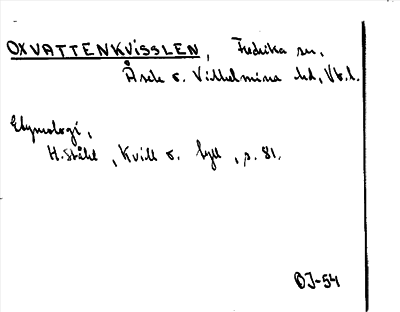 OXVATTENKVISSLEN, Fredrika sn,
Åsele o. Vilhelmina ld, Vb.l.
Etymologi,
H. Ståhl, Kvill o. byll, s. 81.
OJ-54